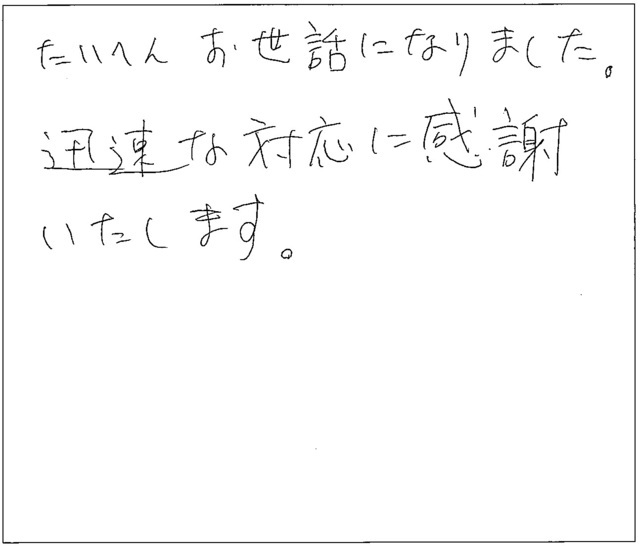 たいへん お世話になりました。
迅速な対応に感謝
いたします。